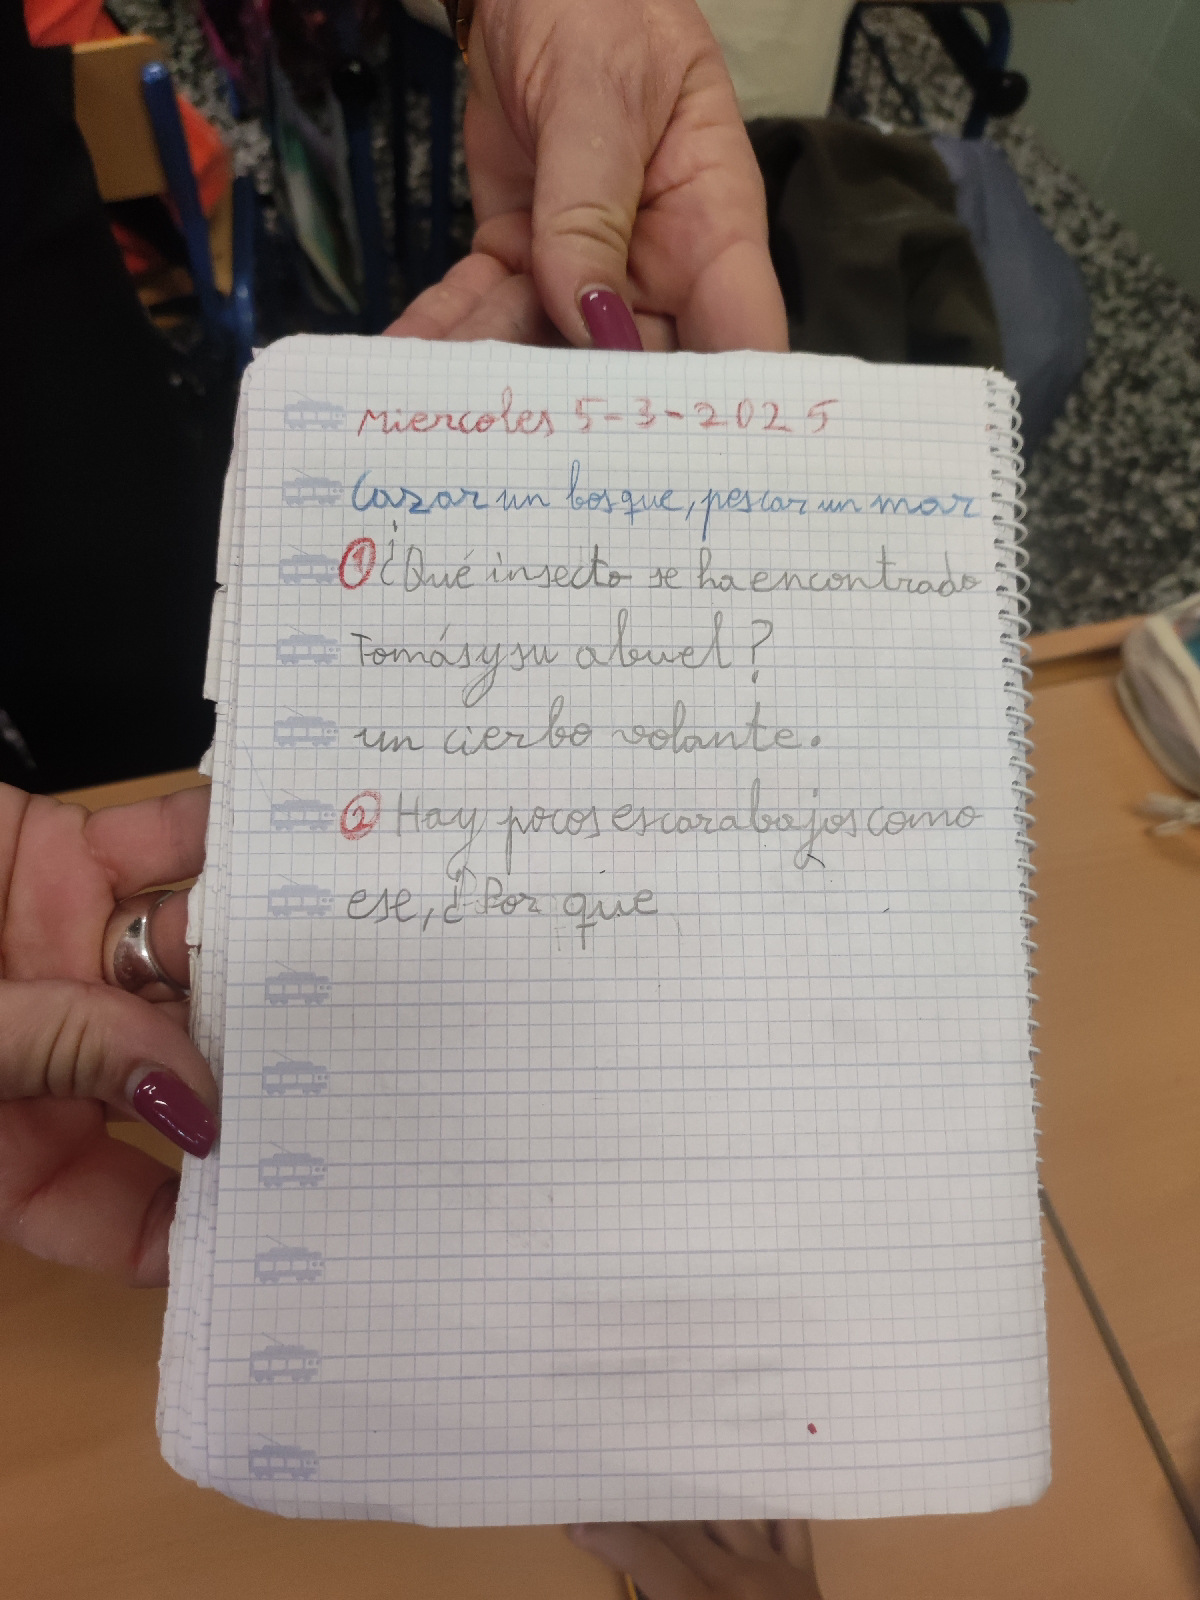 Miercoles 5-3-2025
Cazar un bosque, pescar un mar
① ¿Qué insecto se ha encontrado
Tomás y su abuel?
un cierbo volante.
② Hay pocos escarabajos como
ese, ¿Por que